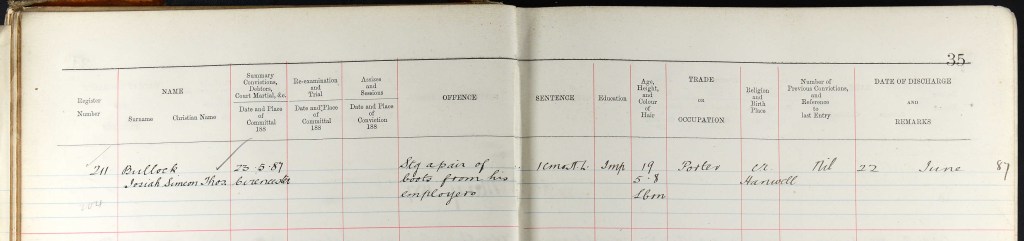 35
Register
Number
NAME
Surname Christian Name
Summary
Convictions,
Debtors,
Court Martial, &c.
Date and Place
of
Committal
188
Re-examination
and
Trial
Date and Place
of
Committal
188
Assizes
and
Sessions
Date and Place
of
Conviction
188
OFFENCE
SENTENCE
Education
Age,
Height,
and
Colour
of
Hair
TRADE
or
OCCUPATION
Religion
and
Birth
Place
Number of
Previous Convictions,
and
Reference
to
last Entry
DATE OF DISCHARGE
AND
REMARKS
211 Bullock 23.5.87 Stg a pair of 1 Cm. H.L. Imp 19 Porter Nil 22 June 87
Josiah Simeon Thos Cirencester boots from his 5.8 Hanwell
employers Lbrn
204